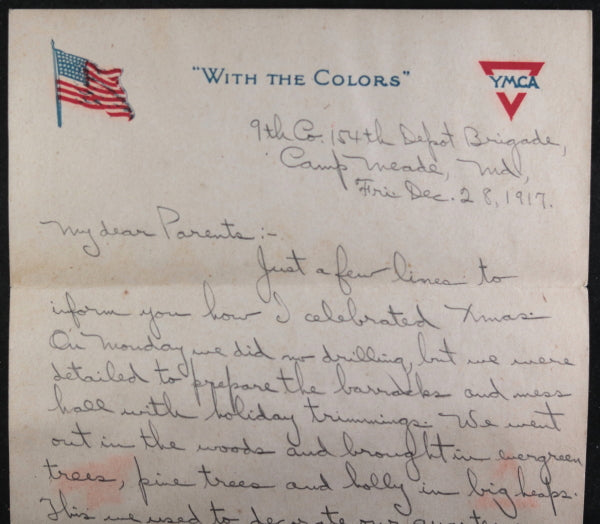 "WITH THE COLORS"
YMCA
9th Co. 154th Depot Brigade,
Camp Meade, Md,
Fri. Dec. 28, 1917.
My dear Parents:-
Just a few lines to
inform you how I celebrated Xmas.
On Monday we did no drilling, but we were
detailed to prepare the barracks and mess
hall with holiday trimmings. We went
out in the woods and brought in evergreen
trees, pine trees and holly in big heaps.
This we used to decorate our